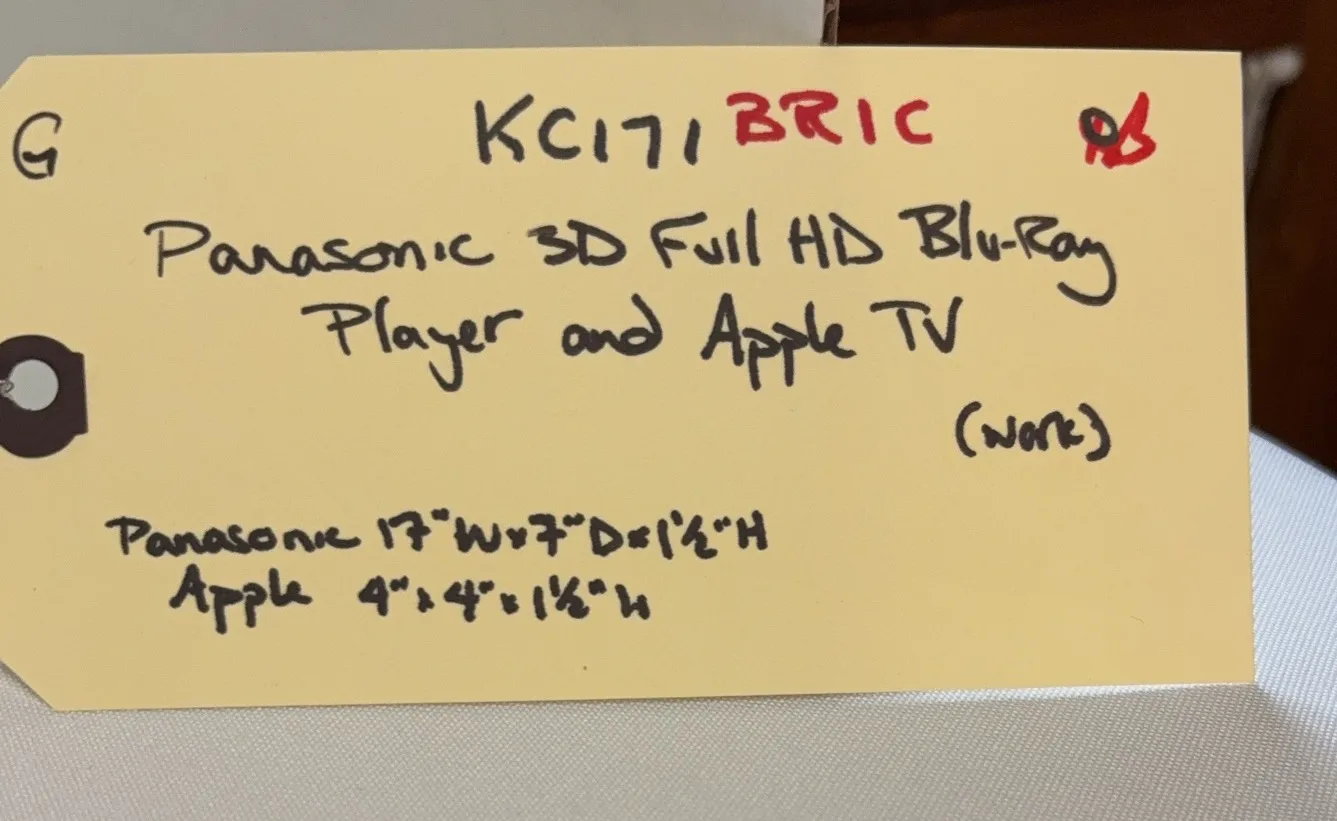 G KC171 BR1C
Panasonic 3D Full HD Blu-Ray
Player and Apple TV
(work)
Panasonic 17"W x 7"D x 1 1/2"H
Apple 4" x 4" x 1 1/2" h